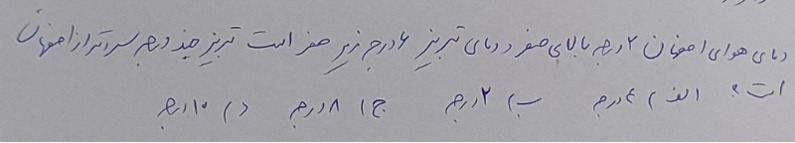 دمای هوای اصفهان ۲ درجه بالای صفر و دمای تبریز ۶ درجه زیر صفر است تبریز چند درجه سردتر از اصفهان
است؟ الف) ۴ درجه ب) ۲ درجه ج) ۸ درجه د) ۱۰ درجه